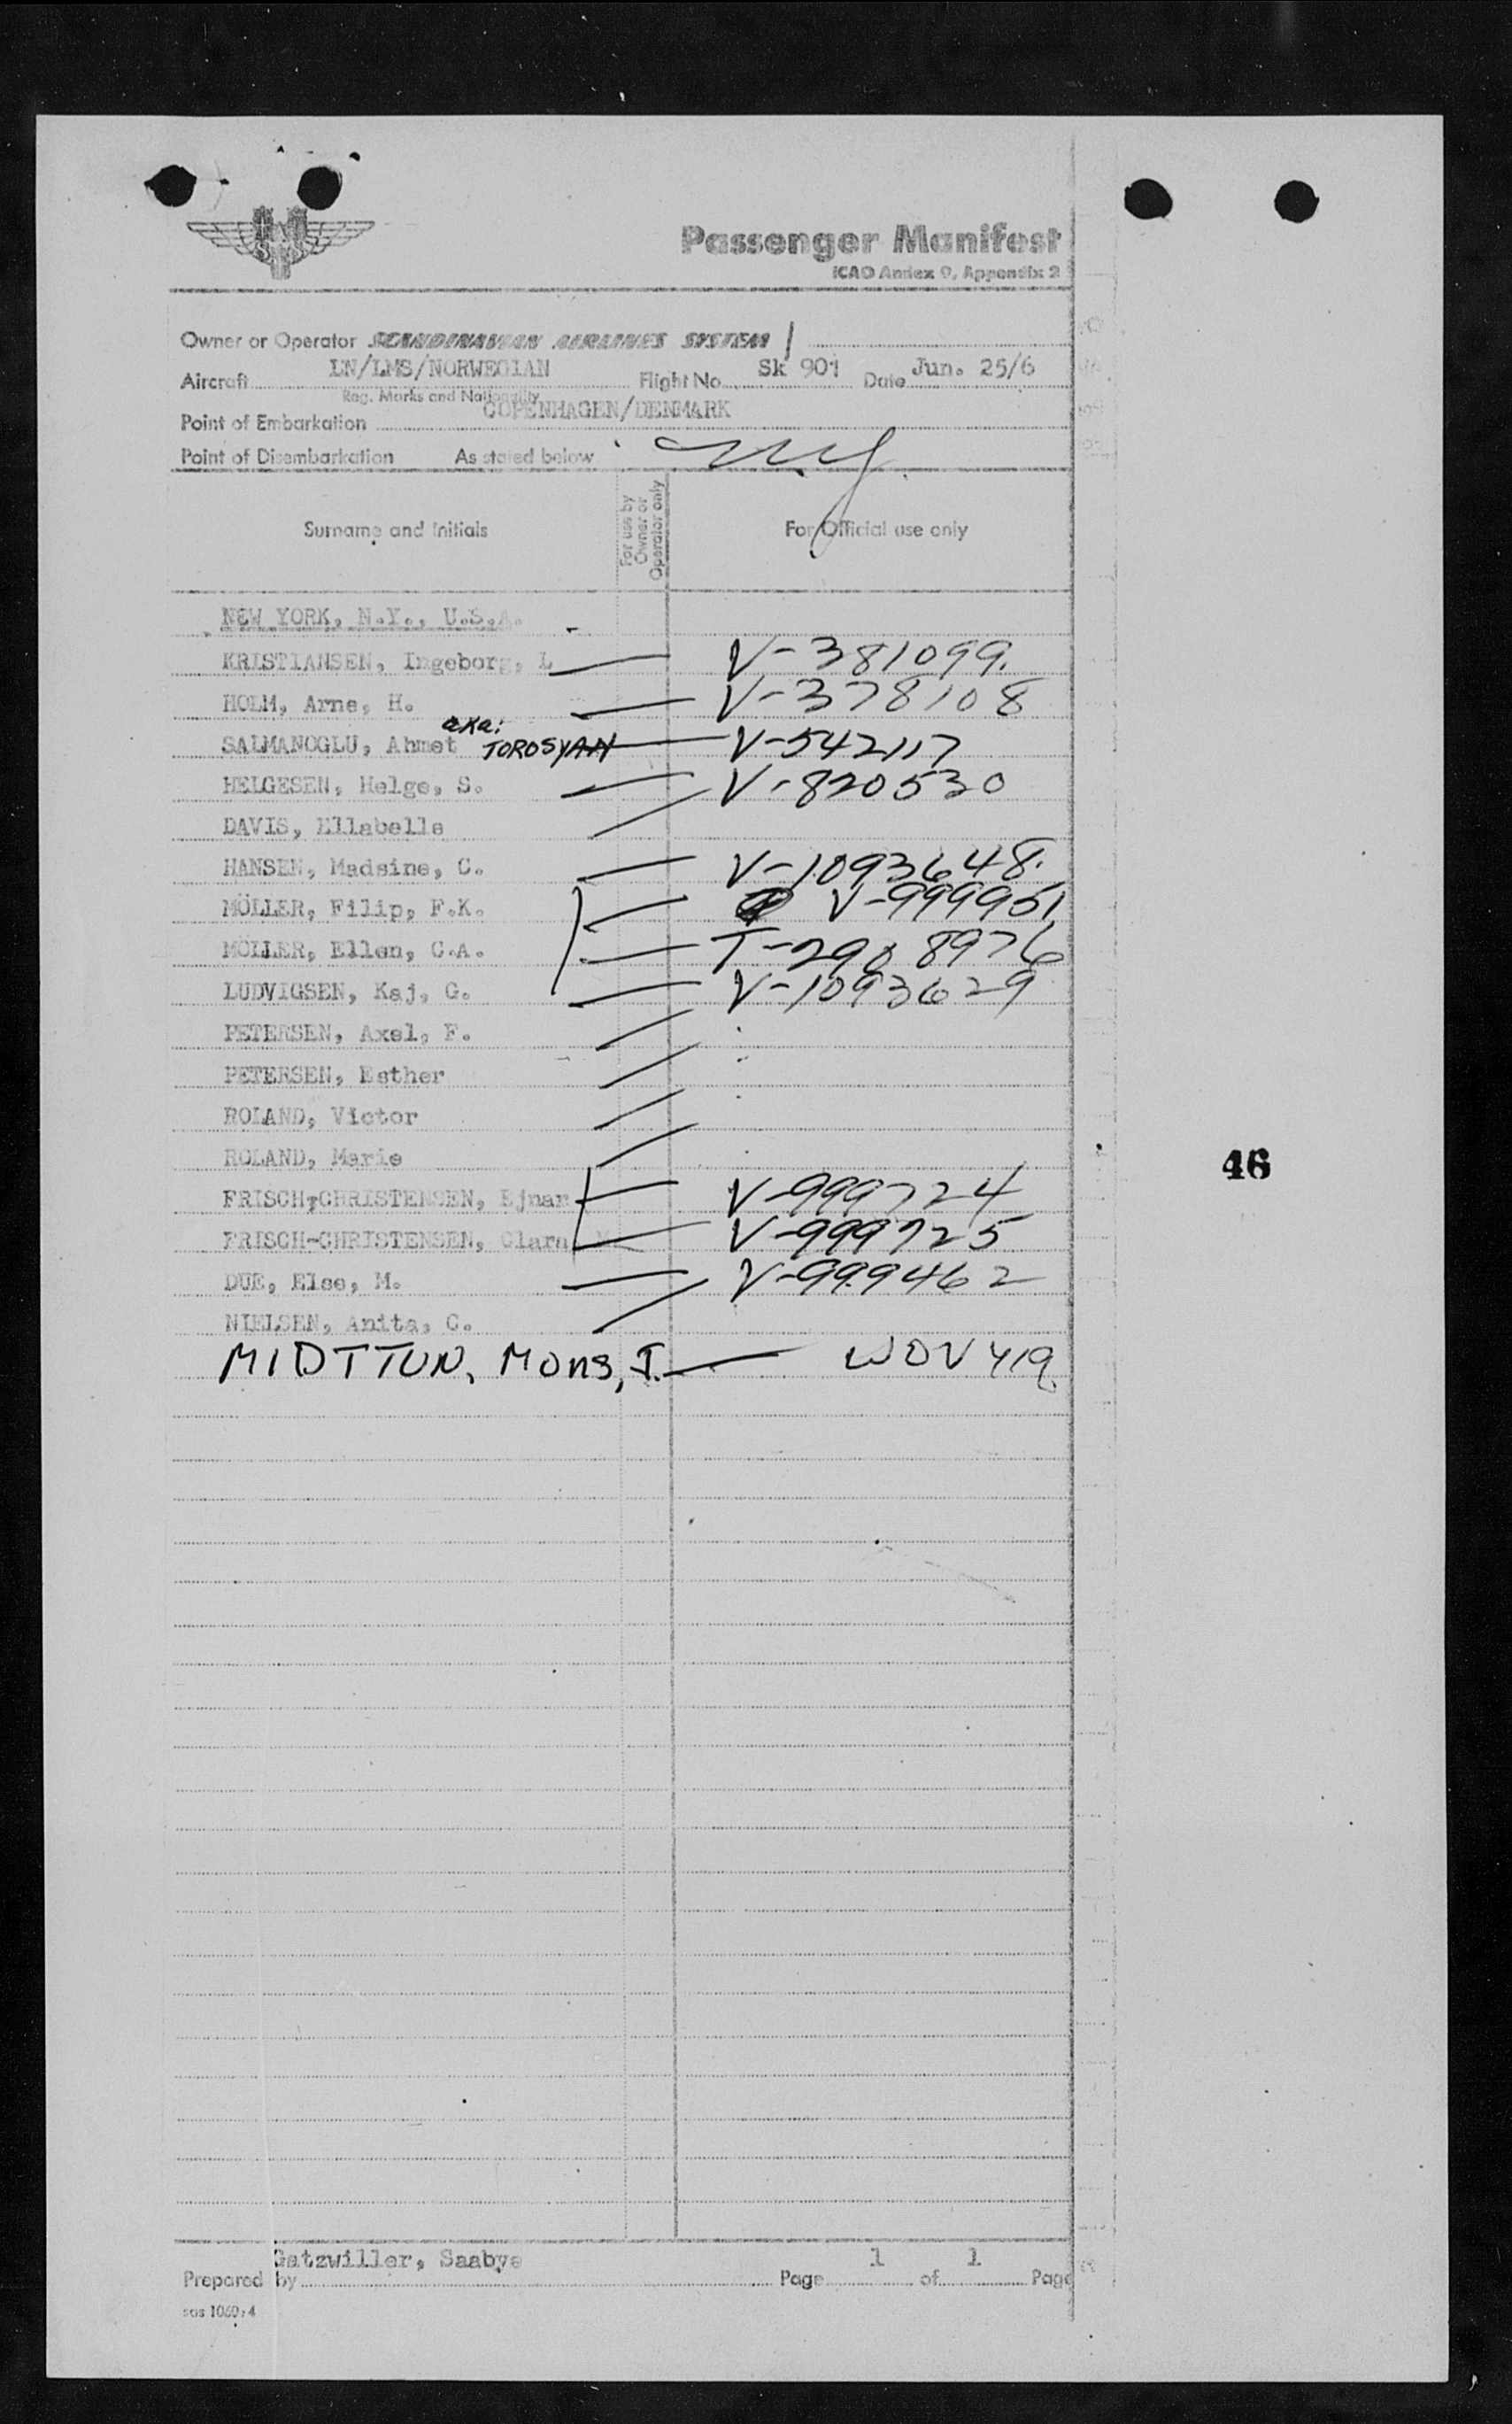 Passenger Manifest
ICAO Annex 9, Appendix 2
Owner or Operator SCANDINAVIAN AIRLINES SYSTEM
Aircraft LN/LMS/NORWEGIAN Flight No. Sk 901 Date Jun. 25/6
Reg. Marks and Nationality
Point of Embarkation COPENHAGEN/DENMARK
Point of Disembarkation As stated below
Surname and Initials For use by Owner or Operator only For Official use only
NEW YORK, N.Y., U.S.A.
KRISTIANSEN, Ingeborg, L V-381099.
HOLM, Arne, H. V-378108
aka:
SALMANOGLU, Ahmet TOROSYAN V-542117
HELGESEN, Helge, S. V-820530
DAVIS, Ellabelle
HANSEN, Madsine, C. V-1093648.
MÖLLER, Filip, F.K. V-999951
MÖLLER, Ellen, C.A. T-2908976
LUDVIGSEN, Kaj, G. V-1093629
PETERSEN, Axel, F.
PETERSEN, Esther
ROLAND, Victor
ROLAND, Marie
FRISCH-CHRISTENSEN, Ejnar V-999724
FRISCH-CHRISTENSEN, Clara V-999725
DUE, Else, M. V-999462
NIELSEN, Anita, C.
MIDTTUN, Mons, I. WOV419
46
Gatzwiller, Saabye
Prepared by Page 1 of 1 Page
sas 1060:4